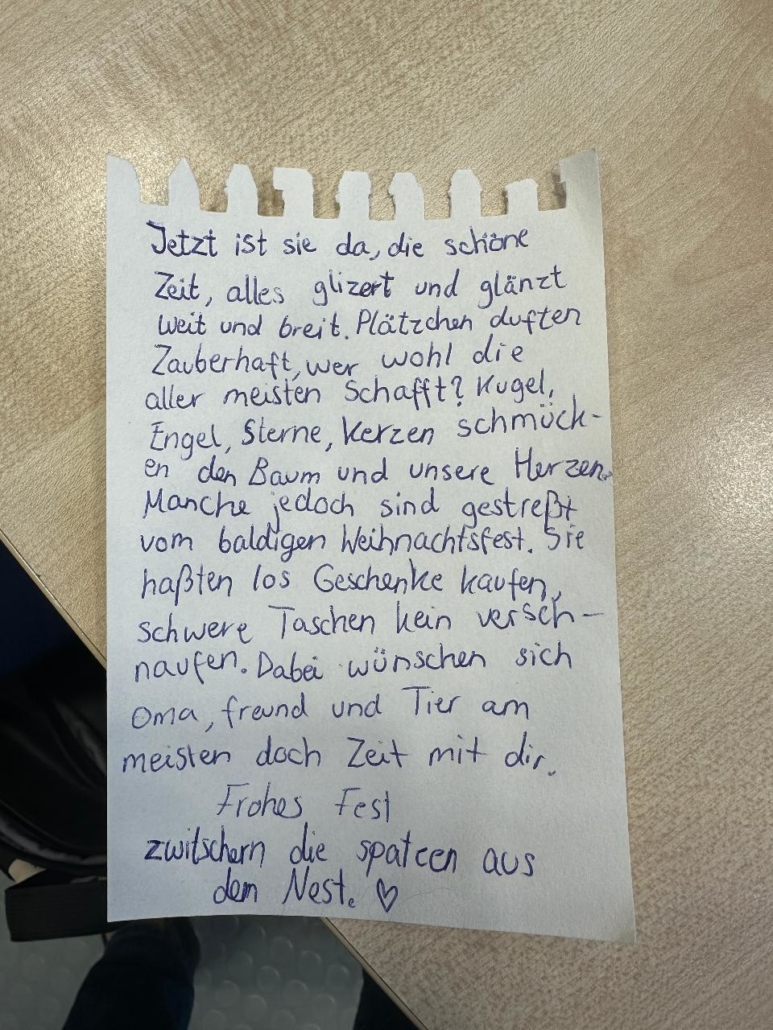 Jetzt ist sie da, die schöne
Zeit, alles glizert und glänzt
weit und breit. Plätzchen duften
Zauberhaft, wer wohl die
aller meisten Schafft? Kugel,
Engel, Sterne, Kerzen schmück-
en den Baum und unsere Herzen.
Manche jedoch sind gestreßt
vom baldigen Weihnachtsfest. Sie
haßten los Geschenke kaufen,
schwere Taschen kein versch-
naufen. Dabei wünschen sich
Oma, freund und Tier am
meisten doch Zeit mit dir.
Frohes Fest
zwitschern die spatzen aus
dem Nest. ♡